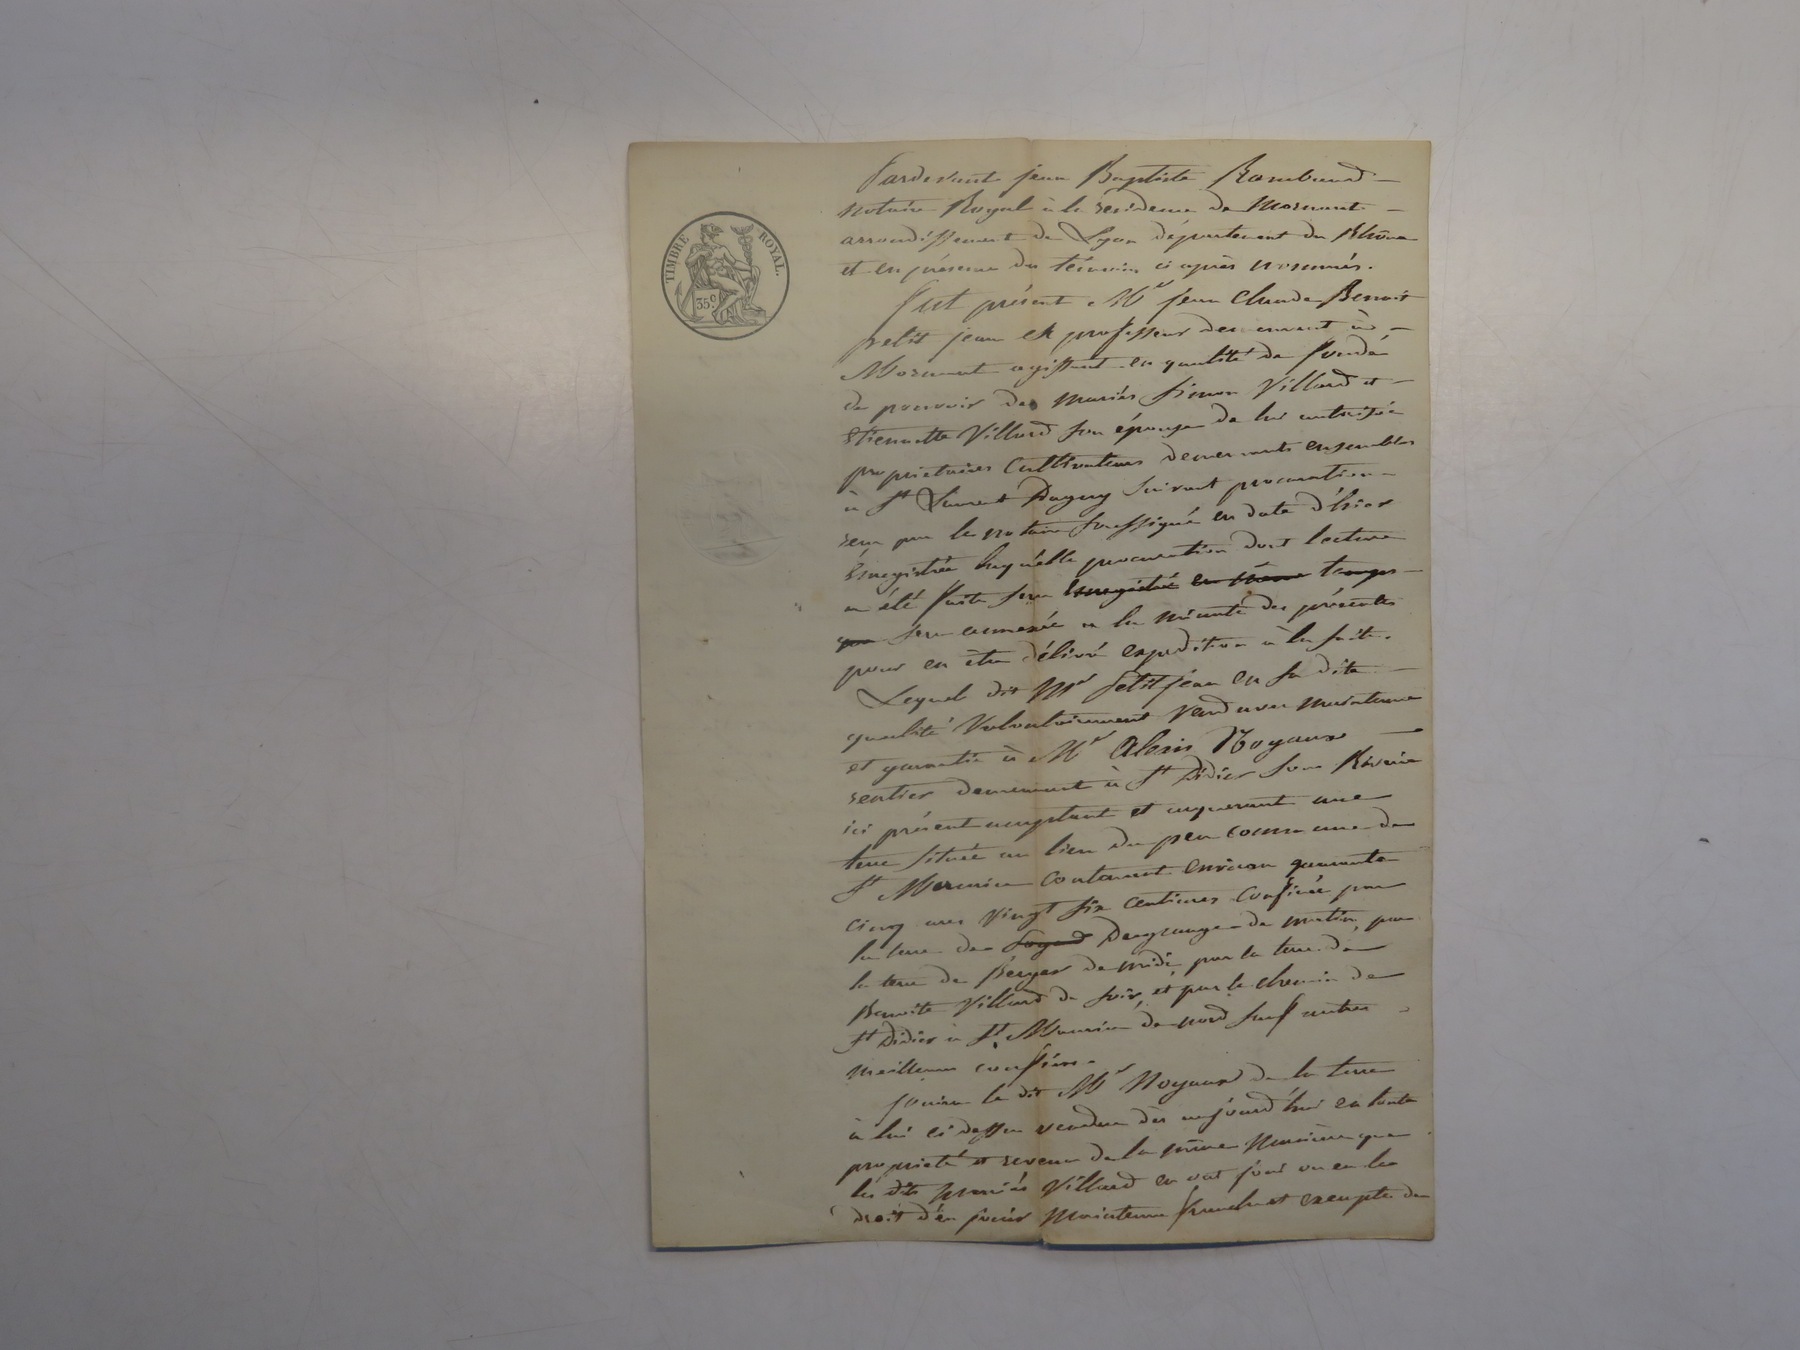 TIMBRE ROYAL.
35 c
Pardevant jean Baptiste Rambaud
notaire Royal à la résidence de Mornant
arrondissement de Lyon département du Rhône
et en présence des témoins ci après nommés.
fut présent Mr jean Claude Benoit
petit jean ex professeur demeurant à
Mornant agissant en qualité de fondé
de pouvoir des mariés Simon Villard et
Etiennette Villard son épouse de lui autorisée
propriétaires Cultivateurs demeurants ensembles
à St Laurent Dagny suivant procuration
reçu par le notaire soussigné en date d'hier
Enregistrée laquelle procuration dont lecture
a été faite sera Enregistrée en même temps
que sera annexée a la minute des présentes
pour en être délivré expédition à la suite.
Lequel dit Mr Petitjean en sa dite
qualité Volontairement vend avec maintenue
et garantie à Mr Alexis Noyaux
rentier demeurant à St Didier sous Riverie
ici présent acceptant et acquerant une
terre située au lieu du peu commune de
St Maurice contenant environ quarante
cinq ares vingt six centiares confinée par
la terre de Degrange de matin, par
la terre de Berger de midi, par la terre de
Benoite Villard de soir, et par le chemin de
St Didier à St Maurice de nord sauf autres
meilleurs confins.
Jouira le dit Mr Noyaux de la terre
à lui ci dessus vendue dès aujourd'hui en toute
propriété et revenu de la même manière que
les dits mariés Villard en ont joui ou eu le
droit d'en jouir maintenue franche et exempte de